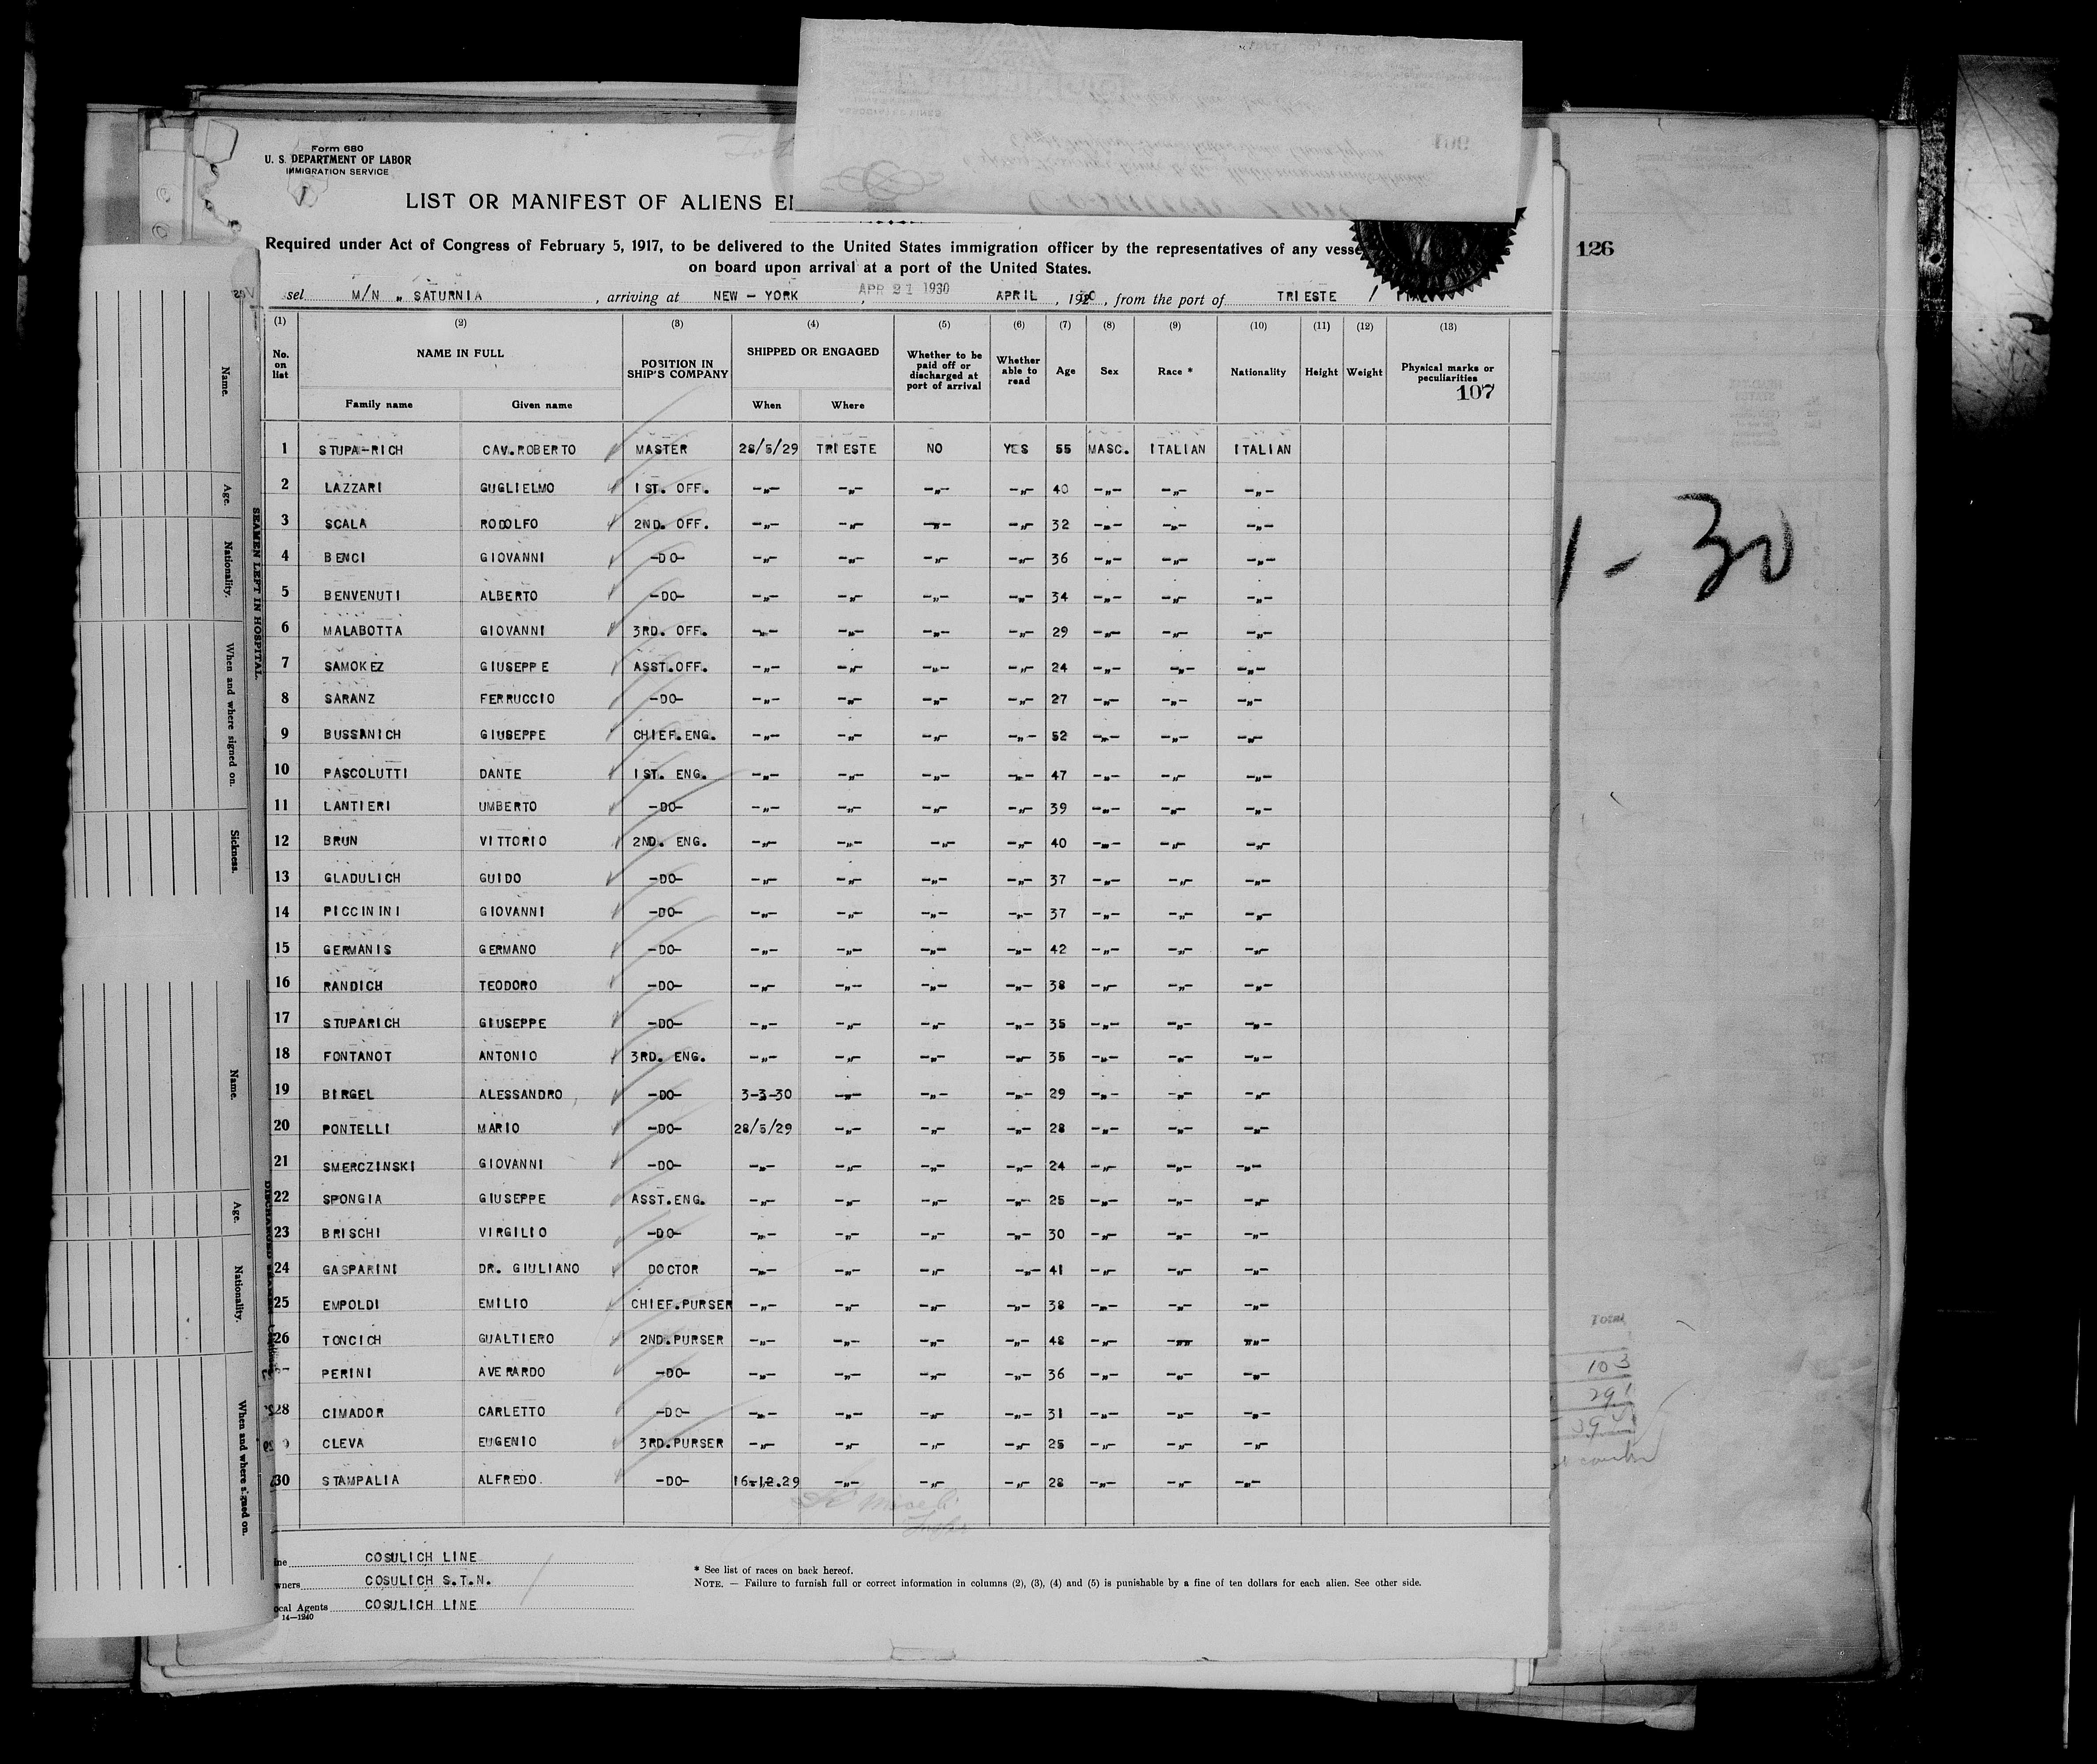 Form 680
U. S. DEPARTMENT OF LABOR
IMMIGRATION SERVICE
LIST OR MANIFEST OF ALIENS
Required under Act of Congress of February 5, 1917, to be delivered to the United States immigration officer by the representatives of any
on board upon arrival at a port of the United States.
126
sel M/N „ SATURNIA , arriving at NEW - YORK APR 21 1930 , APRIL , 1930 , from the port of TRIESTE /
(1) (2) (3) (4) (5) (6) (7) (8) (9) (10) (11) (12) (13)
No. on list NAME IN FULL POSITION IN SHIP'S COMPANY SHIPPED OR ENGAGED Whether to be paid off or discharged at port of arrival Whether able to read Age Sex Race * Nationality Height Weight Physical marks or peculiarities
107
Family name Given name When Where
1 STUPA-RICH CAV.ROBERTO MASTER 28/5/29 TRIESTE NO YES 55 MASC. ITALIAN ITALIAN
2 LAZZARI GUGLIELMO 1ST. OFF. -„- -„- -„- -„- 40 -„- -„- -„-
3 SCALA RODOLFO 2ND. OFF. -„- -„- -„- -„- 32 -„- -„- -„-
4 BENCI GIOVANNI -DO- -„- -„- -„- -„- 36 -„- -„- -„-
5 BENVENUTI ALBERTO -DO- -„- -„- -„- -„- 34 -„- -„- -„-
6 MALABOTTA GIOVANNI 3RD. OFF. -„- -„- -„- -„- 29 -„- -„- -„-
7 SAMOKEZ GIUSEPPE ASST.OFF. -„- -„- -„- -„- 24 -„- -„- -„-
8 SARANZ FERRUCCIO -DO- -„- -„- -„- -„- 27 -„- -„- -„-
9 BUSSANICH GIUSEPPE CHIEF.ENG. -„- -„- -„- -„- 52 -„- -„- -„-
10 PASCOLUTTI DANTE 1ST. ENG. -„- -„- -„- -„- 47 -„- -„- -„-
11 LANTIERI UMBERTO -DO- -„- -„- -„- -„- 39 -„- -„- -„-
12 BRUN VITTORIO 2ND. ENG. -„- -„- -„- -„- 40 -„- -„- -„-
13 GLADULICH GUIDO -DO- -„- -„- -„- -„- 37 -„- -„- -„-
14 PICCININI GIOVANNI -DO- -„- -„- -„- -„- 37 -„- -„- -„-
15 GERMANIS GERMANO -DO- -„- -„- -„- -„- 42 -„- -„- -„-
16 RANDICH TEODORO -DO- -„- -„- -„- -„- 38 -„- -„- -„-
17 STUPARICH GIUSEPPE -DO- -„- -„- -„- -„- 35 -„- -„- -„-
18 FONTANOT ANTONIO 3RD. ENG. -„- -„- -„- -„- 35 -„- -„- -„-
19 BIRGEL ALESSANDRO -DO- 3-3-30 -„- -„- -„- 29 -„- -„- -„-
20 PONTELLI MARIO -DO- 28/5/29 -„- -„- -„- 28 -„- -„- -„-
21 SMERCZINSKI GIOVANNI -DO- -„- -„- -„- -„- 24 -„- -„- -„-
22 SPONGIA GIUSEPPE ASST.ENG. -„- -„- -„- -„- 25 -„- -„- -„-
23 BRISCHI VIRGILIO -DO- -„- -„- -„- -„- 30 -„- -„- -„-
24 GASPARINI DR. GIULIANO DOCTOR -„- -„- -„- -„- 41 -„- -„- -„-
25 EMPOLDI EMILIO CHIEF.PURSER -„- -„- -„- -„- 38 -„- -„- -„-
26 TONCICH GUALTIERO 2ND.PURSER -„- -„- -„- -„- 48 -„- -„- -„-
PERINI AVERARDO -DO- -„- -„- -„- -„- 36 -„- -„- -„-
28 CIMADOR CARLETTO -DO- -„- -„- -„- -„- 31 -„- -„- -„-
CLEVA EUGENIO 3RD.PURSER -„- -„- -„- -„- 25 -„- -„- -„-
30 STAMPALIA ALFREDO. -DO- 16-12.29 -„- -„- -„- 28 -„- -„- -„-
COSULICH LINE
COSULICH S.T.N.
Agents COSULICH LINE
14—1240
* See list of races on back hereof.
NOTE. — Failure to furnish full or correct information in columns (2), (3), (4) and (5) is punishable by a fine of ten dollars for each alien. See other side.
SEAMEN LEFT IN HOSPITAL.
Name.
Age.
Nationality.
When and where signed on.
Sickness.
Name.
Age.
Nationality.
When and where signed on.
1 - 30
Total
103
291